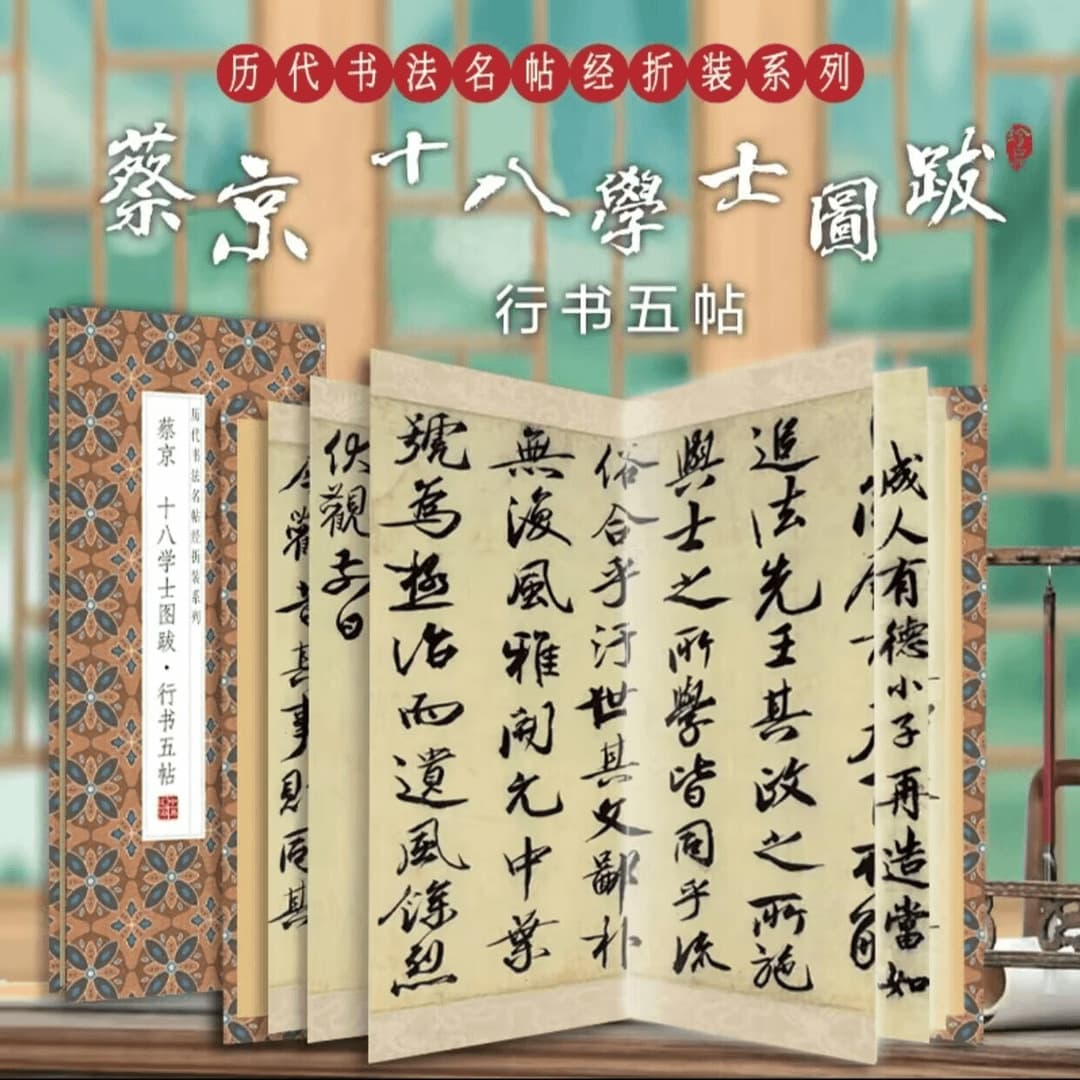 历代书法名帖经折装系列
蔡京 十八學士圖跋
行书五帖
历代书法名帖经折装系列
蔡京 十八学士图跋·行书五帖
成人有德小子再造當如
追法先王其政之所施
與士之所學皆同乎流
俗合乎汙世其文鄙朴
無復風雅開元中葉
號為極治而遺風餘烈
伏觀子曰